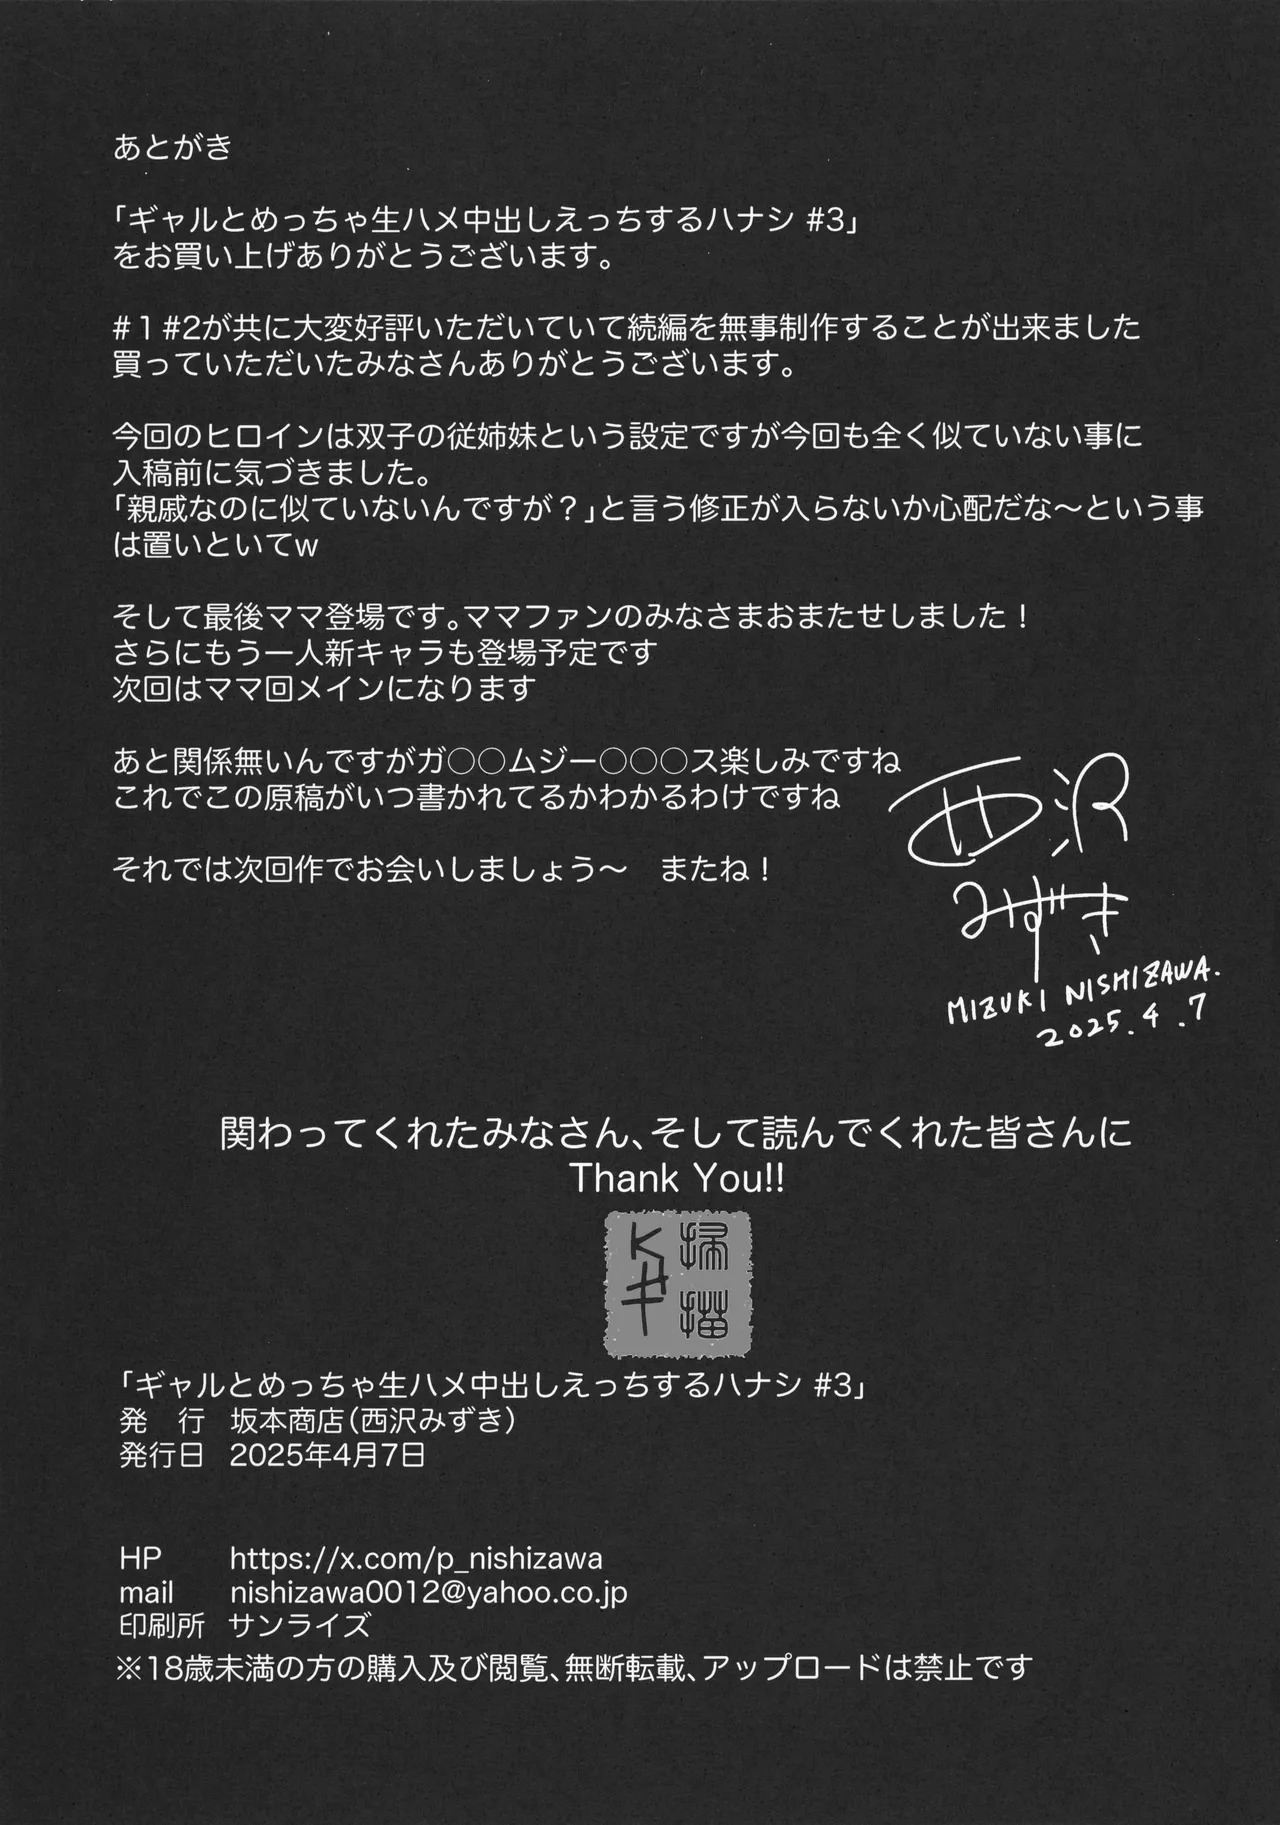 あとがき
「ギャルとめっちゃ生ハメ中出しえっちするハナシ #3」
をお買い上げありがとうございます。
#１#2が共に大変好評いただいていて続編を無事制作することが出来ました
買っていただいたみなさんありがとうございます。
今回のヒロインは双子の従姉妹という設定ですが今回も全く似ていない事に
入稿前に気づきました。
「親戚なのに似ていないんですが？」と言う修正が入らないか心配だな〜という事
は置いといてw
そして最後ママ登場です。ママファンのみなさまおまたせしました！
さらにもう一人新キャラも登場予定です
次回はママ回メインになります
あと関係無いんですがガ○○ムジー○○○ス楽しみですね
これでこの原稿がいつ書かれてるかわかるわけですね
それでは次回作でお会いしましょう〜　またね！
西沢
みずき
MIZUKI NISHIZAWA.
2025.4.7
関わってくれたみなさん、そして読んでくれた皆さんに
Thank You!!
掃描
Kキ
「ギャルとめっちゃ生ハメ中出しえっちするハナシ #3」
発　行　坂本商店（西沢みずき）
発行日　2025年4月7日
HP　https://x.com/p_nishizawa
mail　nishizawa0012@yahoo.co.jp
印刷所　サンライズ
※18歳未満の方の購入及び閲覧、無断転載、アップロードは禁止です